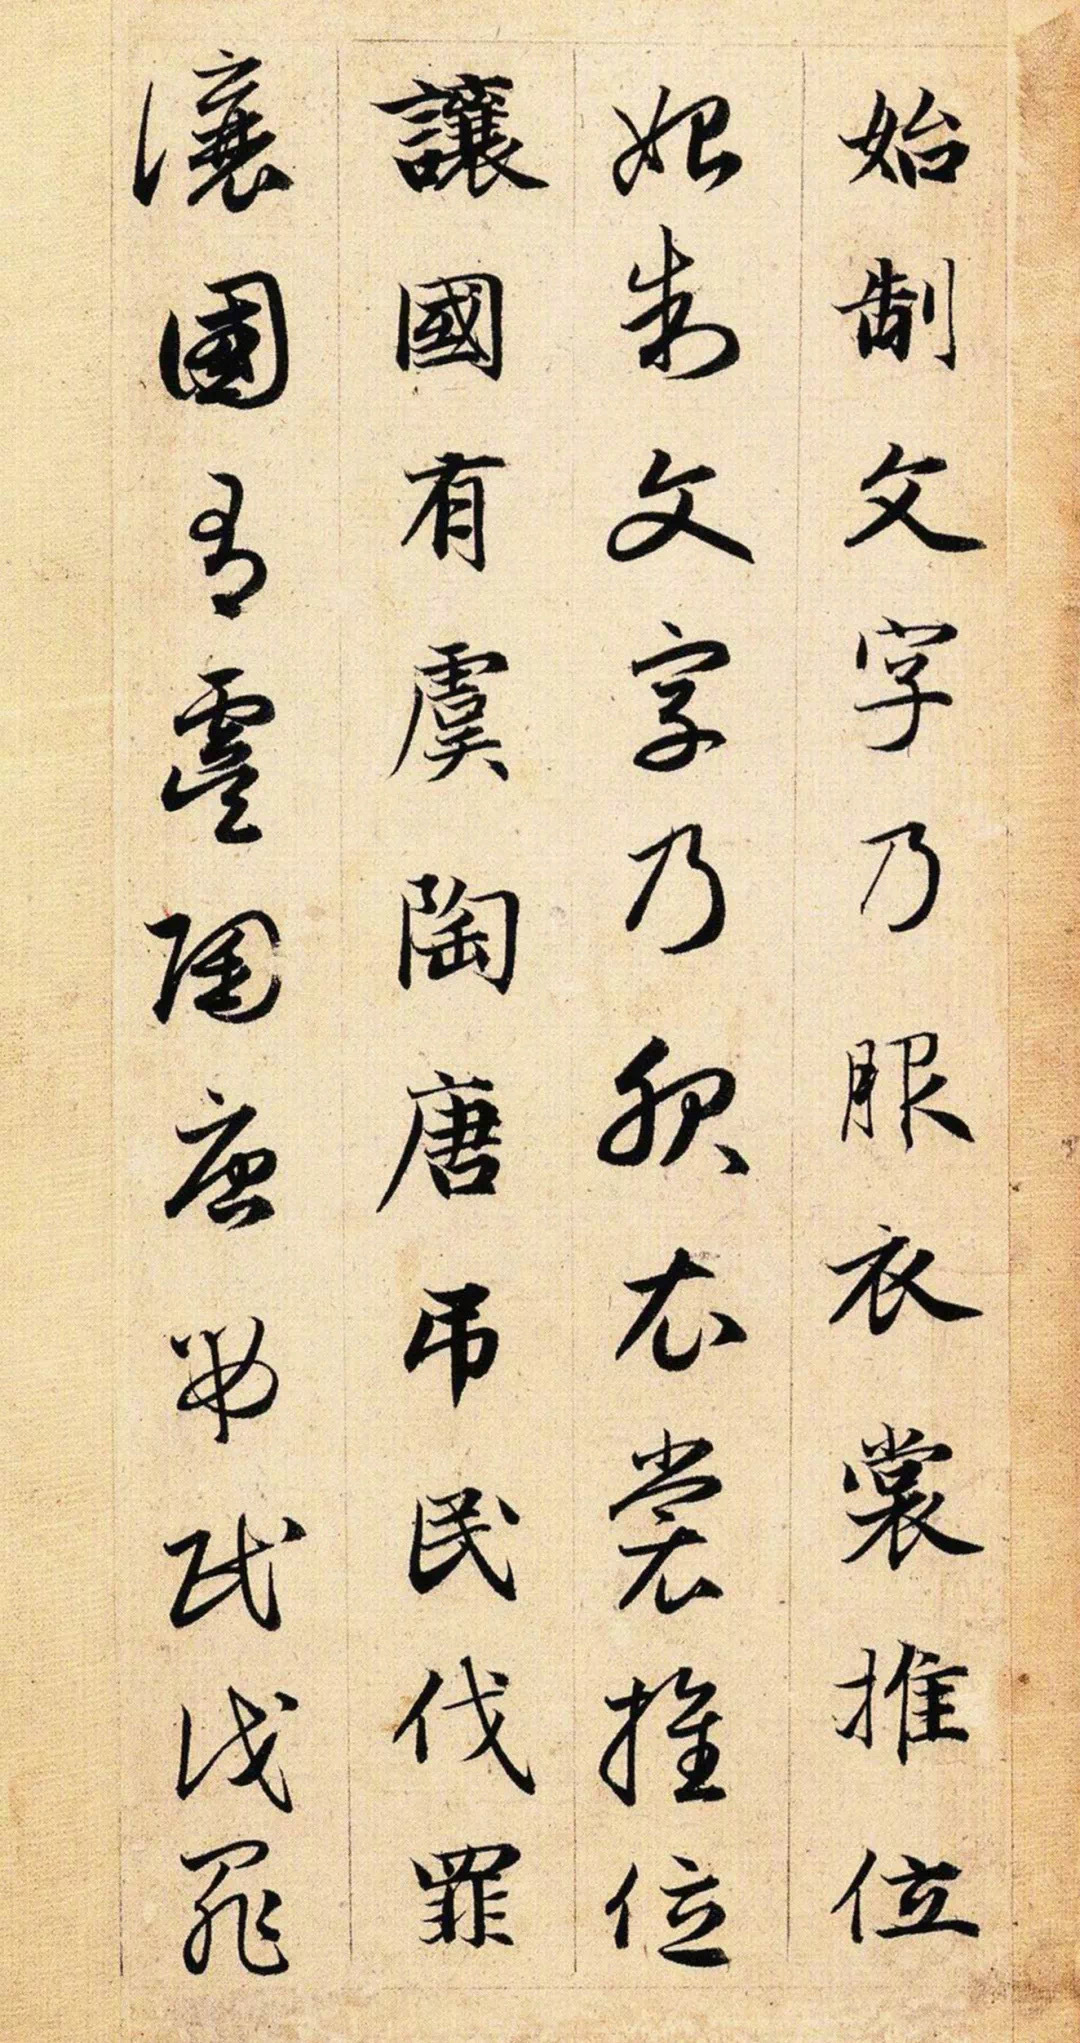 始制文字乃服衣裳推位
始制文字乃服衣裳推位
讓國有虞陶唐弔民伐罪
讓國有虞陶唐弔民伐罪